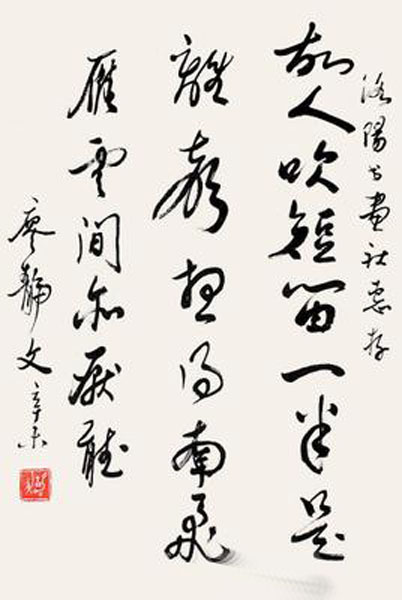 洛陽书畫社惠存
故人吹短笛一半是
離聲想得南飛
雁雲間亦厭聽
廖靜文辛未